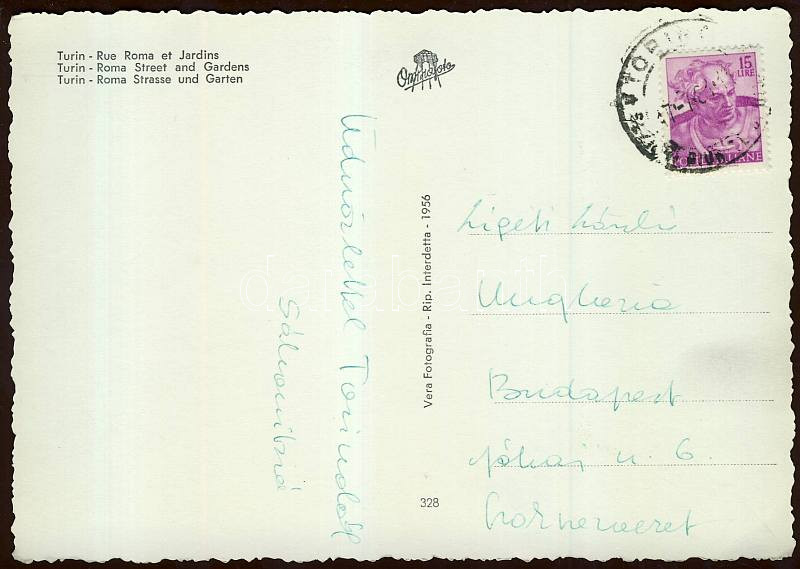 Turin - Rue Roma et Jardins
Turin - Roma Street and Gardens
Turin - Roma Strasse und Garten
Omniafoto
15
LIRE
POSTE ITALIANE
TORINO
Üdvözlettel Torinóból
Vera Fotografia - Rip. Interdetta - 1956
328
Ligeti László
Ungheria
Budapest
Jókai u. 6.